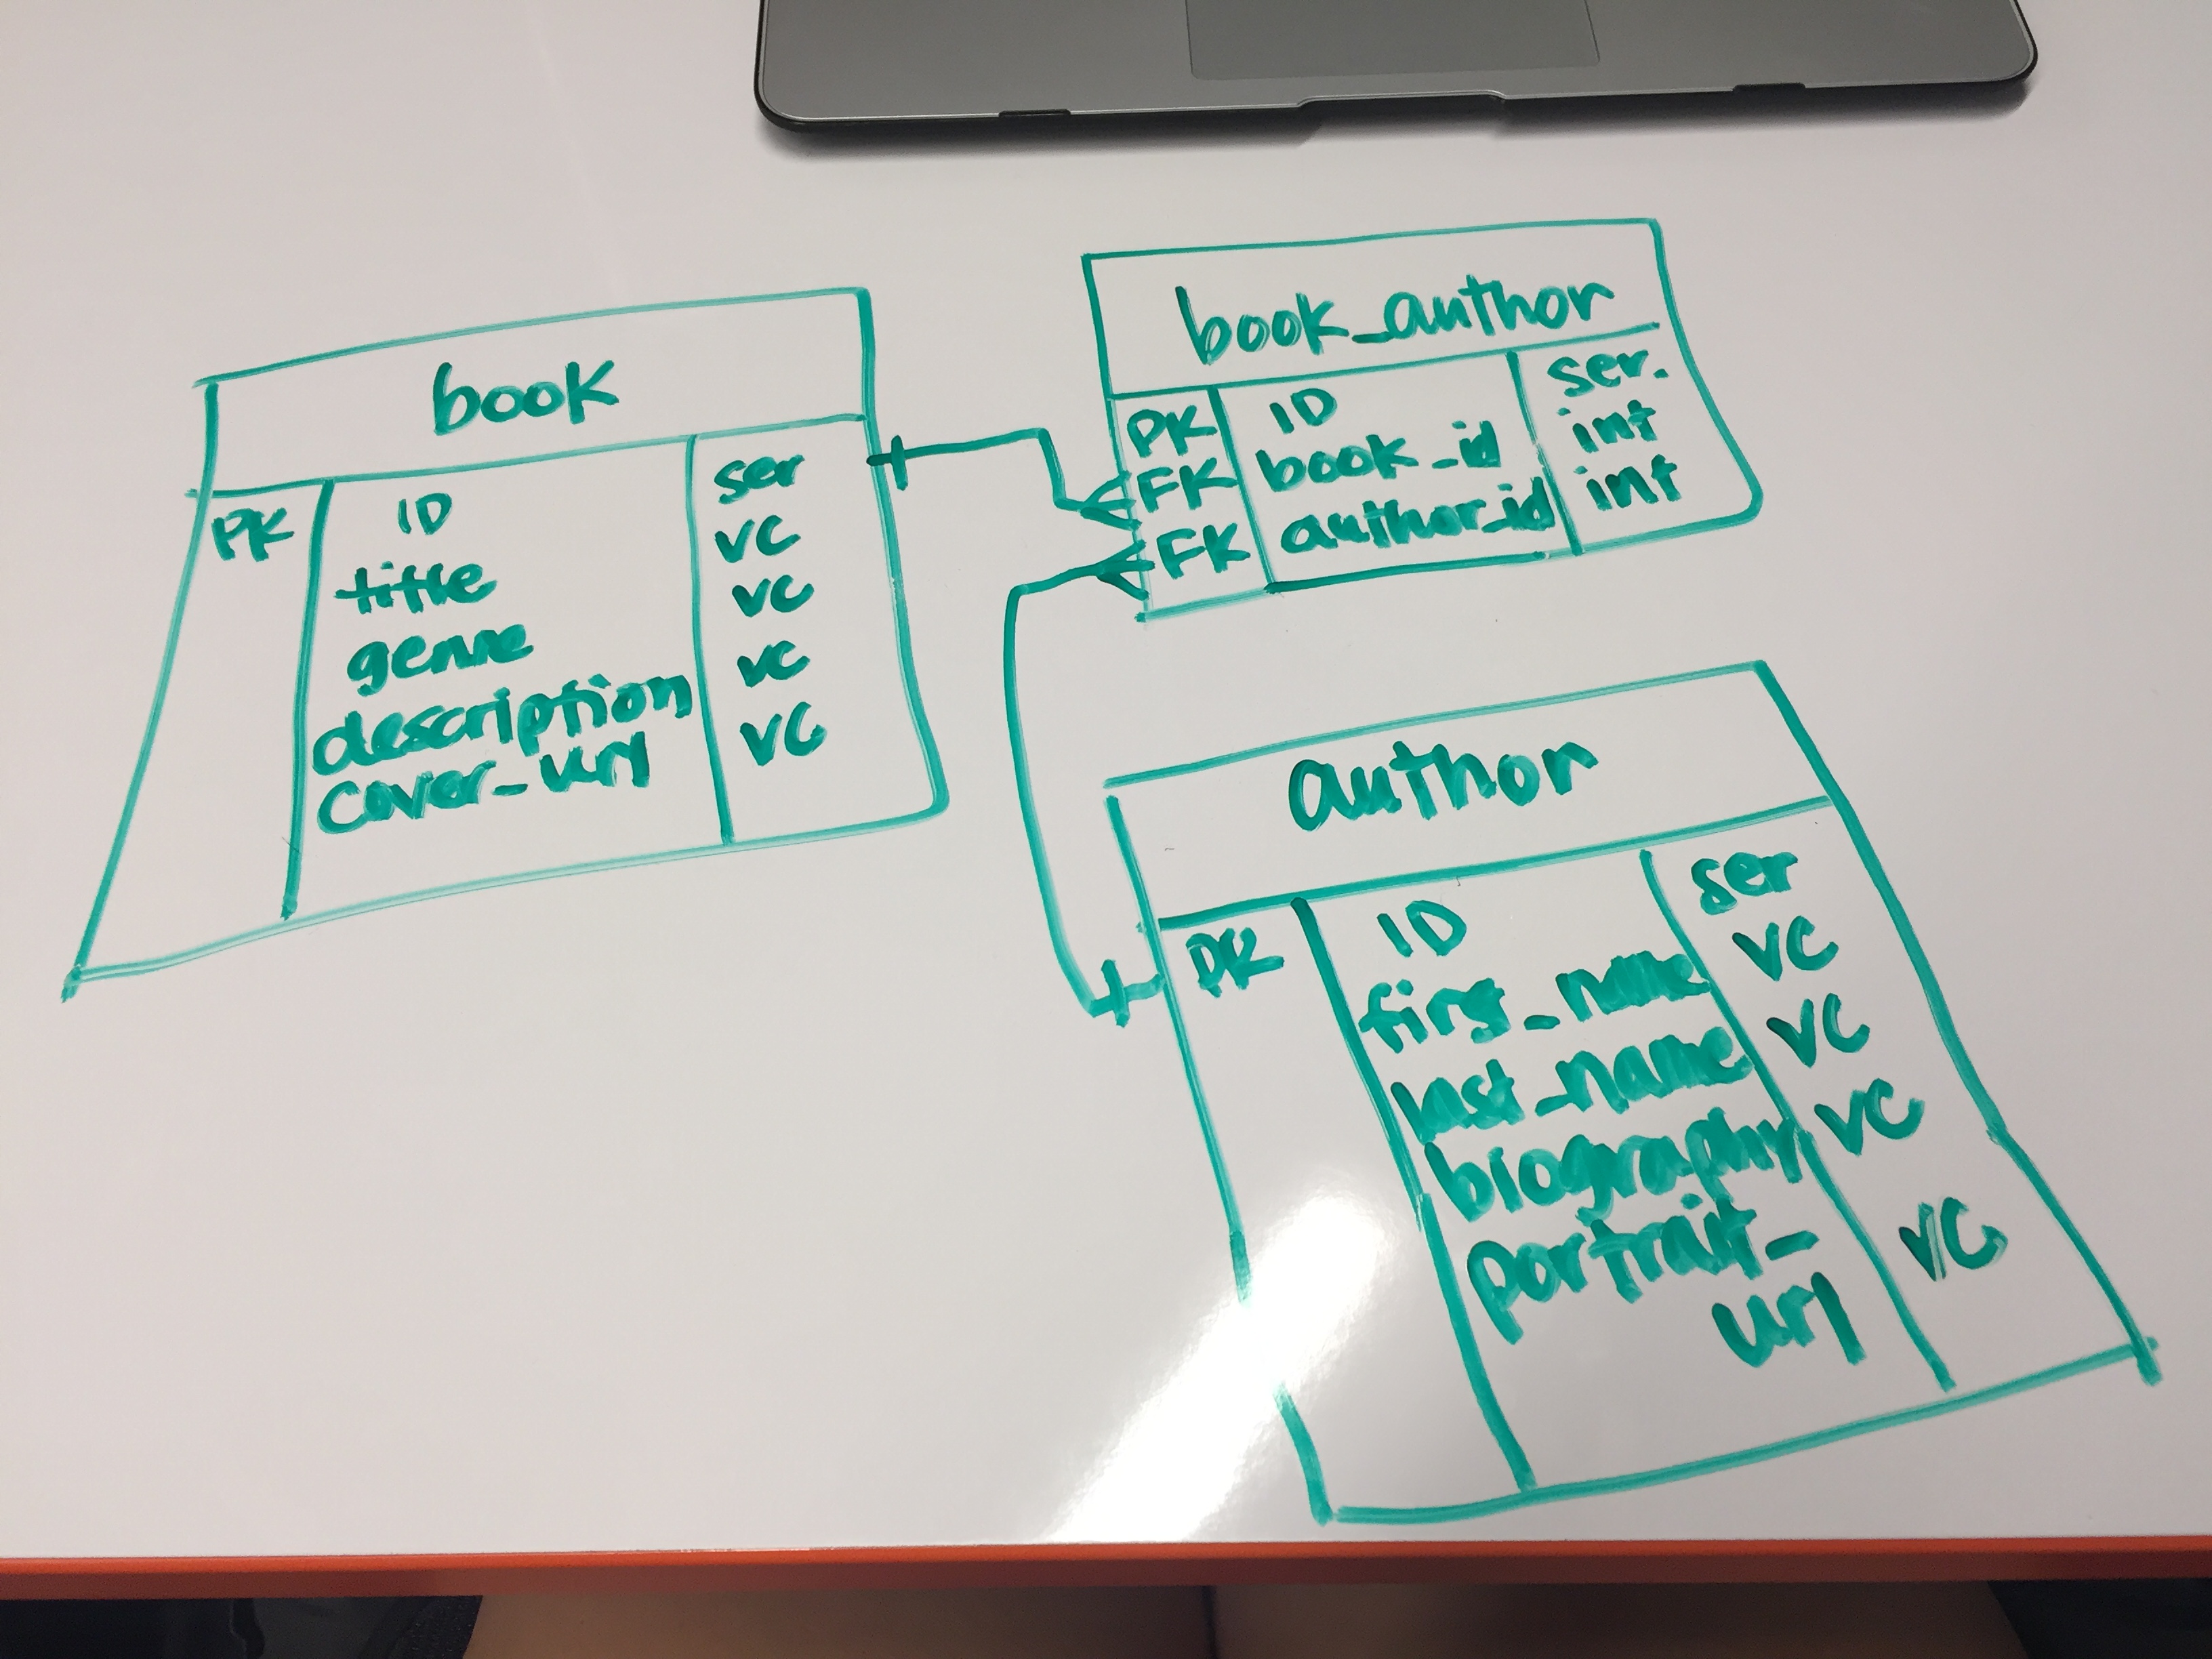 book
PK ID ser
title VC
genre VC
description VC
cover_url VC
book_author
PK ID ser.
FK book_id int
FK author_id int
author
PK ID ser
first_name VC
last_name VC
biography VC
portrait_ VC
url